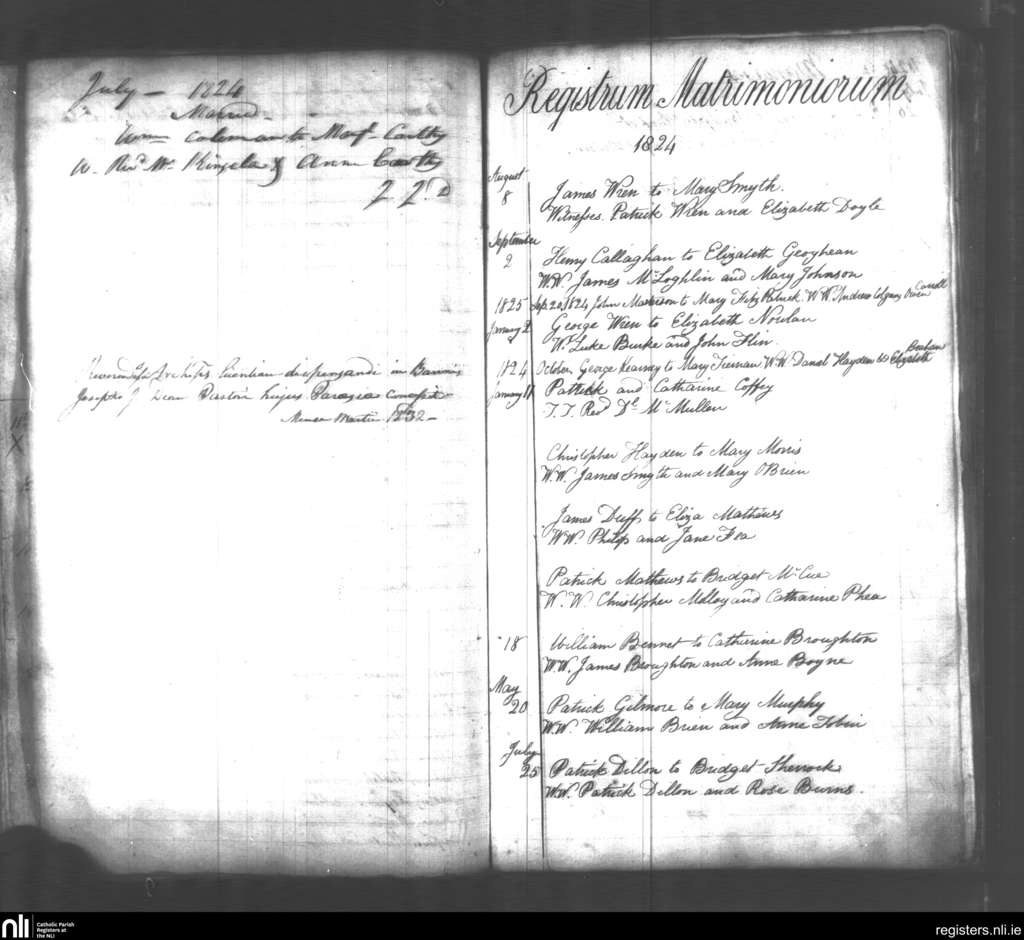 July – 1824
Married
Wm Coleman to Mary Coulthy
W. Revd Mr. Kinsela & Anne
Joseph Dean Pastor hujus
Mense Martii 1832
Registrum Matrimoniorum
1824
August
8 James Wren to Mary Smyth.
Witnesses. Patrick Wren and Elizabeth Doyle
September
2 Henry Callaghan to Elizabeth Geoghean
W.W. James McLoghlin and Mary Johnson
1825 Sep. 20, 1824 John to Mary Fitz Patrick. W W. Andrew Colgan, Owen Carroll
January 2 George Wren to Elizabeth Nowlan
W. Luke Burke and John Flin
1824 October George Kearney to Mary Tiernan W.W. Daniel Hayden & Elizabeth
January 11 Patrick and Catharine Coffey
T.T. Revd Dr McMullen
Christopher Hayden to Mary Morris
W.W. James Smyth and Mary O'Brien
James Duff to Eliza Mathews
W.W. Philip and Jane Fea
Patrick Mathews to Bridget McCue
W. W. Christopher Molloy and Catharine Phea
18 William Bennet to Catharine Broughton
W.W. James Broughton and Anne Boyne
May
20 Patrick Gilmore to Mary Murphy
W.W. William Brien and Anne Tobin
July
25 Patrick Dillon to Bridget Sherrock
W.W. Patrick Dillon and Rose Burns.
nli Catholic Parish
Registers at
the NLI
registers.nli.ie